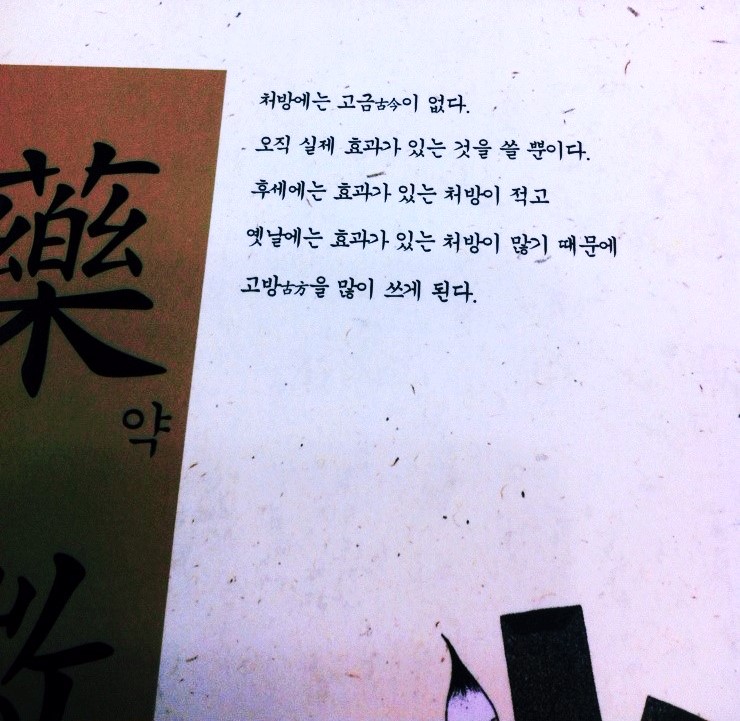 처방에는 고금古今이 없다.
오직 실제 효과가 있는 것을 쓸 뿐이다.
후세에는 효과가 있는 처방이 적고
옛날에는 효과가 있는 처방이 많기 때문에
고방古方을 많이 쓰게 된다.
藥
약